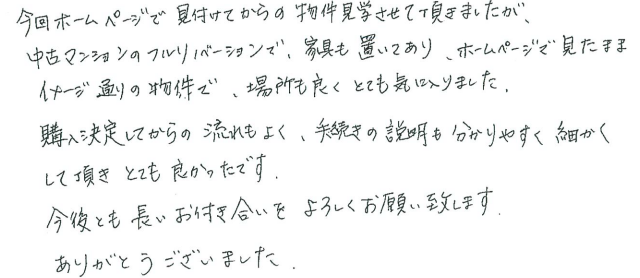 今回ホームページで見付けてからの物件見学させて頂きましたが、
中古マンションのフルリノベーションで、家具も置いてあり、ホームページで見たまま
イメージ通りの物件で、場所も良くとても気に入りました。
購入決定してからの流れもよく、手続きの説明も分かりやすく細かく
して頂きとても良かったです。
今後とも長いお付き合いをよろしくお願い致します。
ありがとうございました。